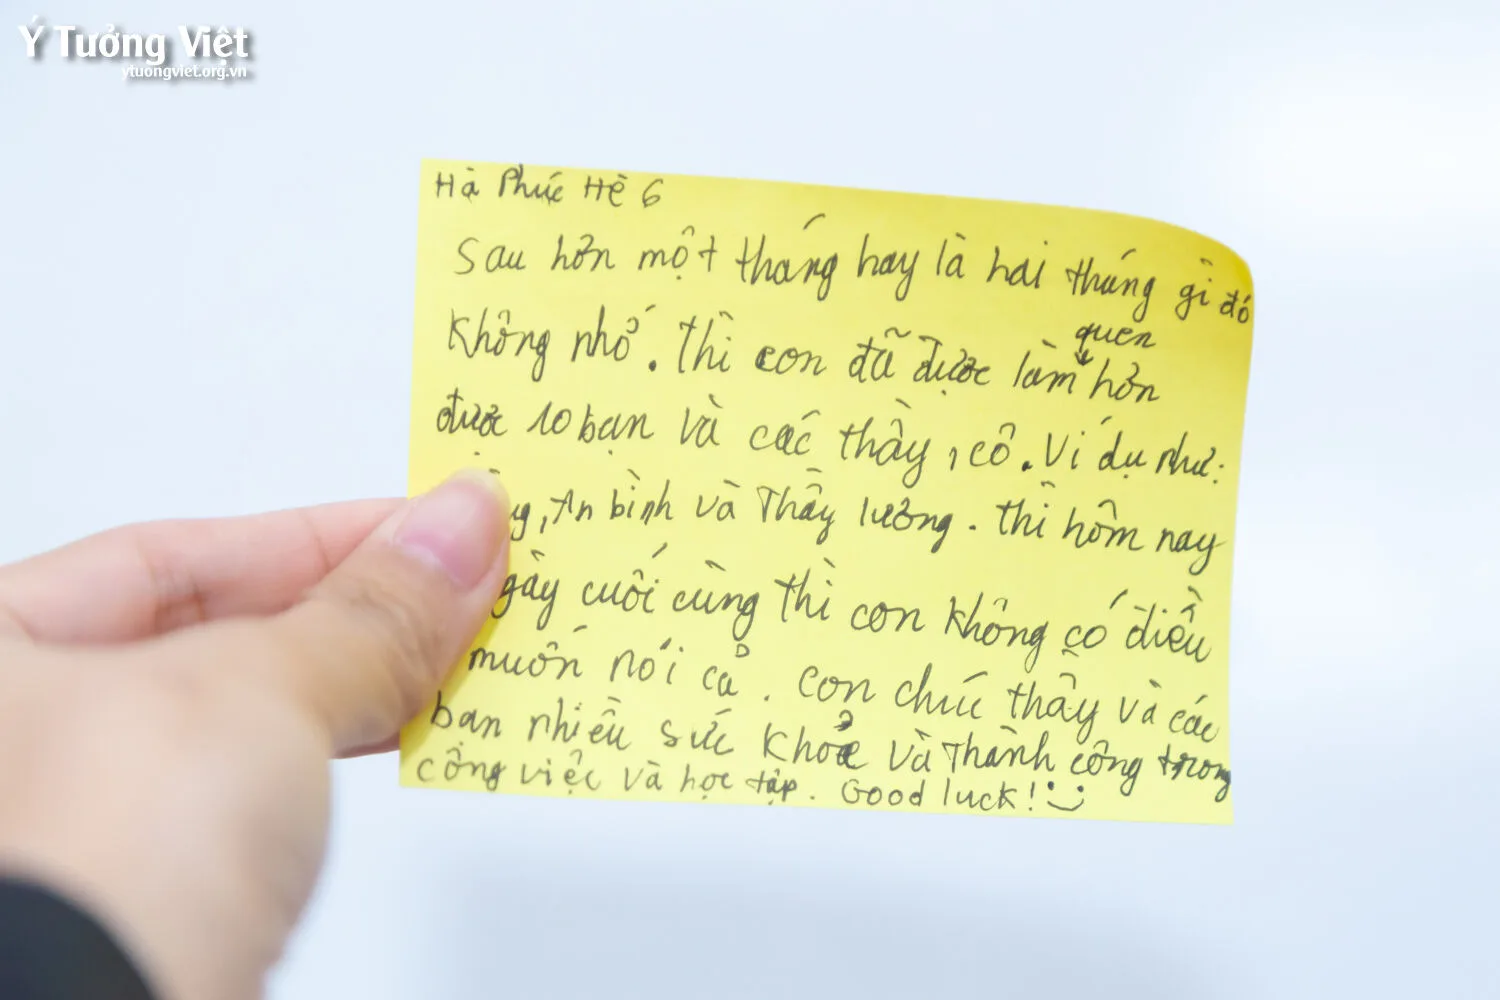 Ý Tưởng Việt
ytuongviet.org.vn
Hà Phúc Hè 6
Sau hơn một tháng hay là hai tháng gì đó
Không nhớ. Thì con đã được làm quen hơn
được 10 bạn và các thầy, cô. Ví dụ như:
An bình và Thầy lương. Thì hôm nay
cuối cùng thì con không có điều
muốn nói cả. Con chúc thầy và các
bạn nhiều sức khoẻ và Thành công trong
công việc và học tập. Good luck! :)